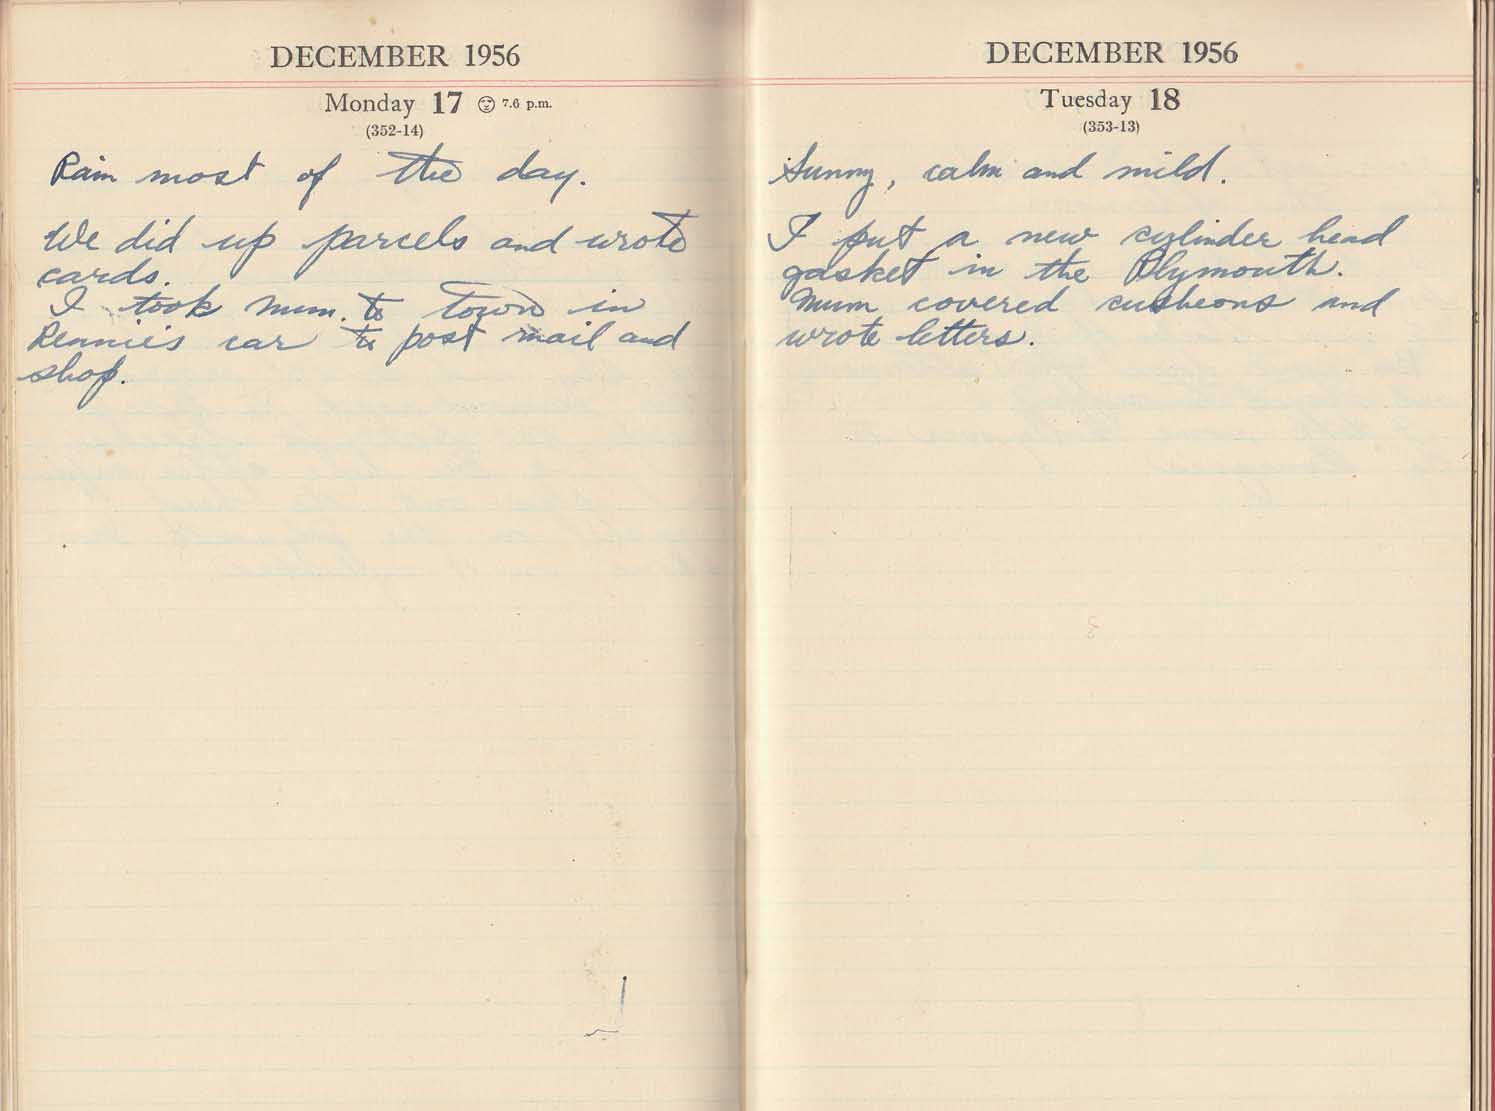 DECEMBER 1956
Monday 17 7.6 p.m.
(352-14)
Rain most of the day.
We did up parcels and wrote
cards.
I took Mum. to town in
Rennie's car to post mail and
shop.
DECEMBER 1956
Tuesday 18
(353-13)
Sunny, calm and mild.
I put a new cylinder head
gasket in the Plymouth.
Mum covered cusheons and
wrote letters.